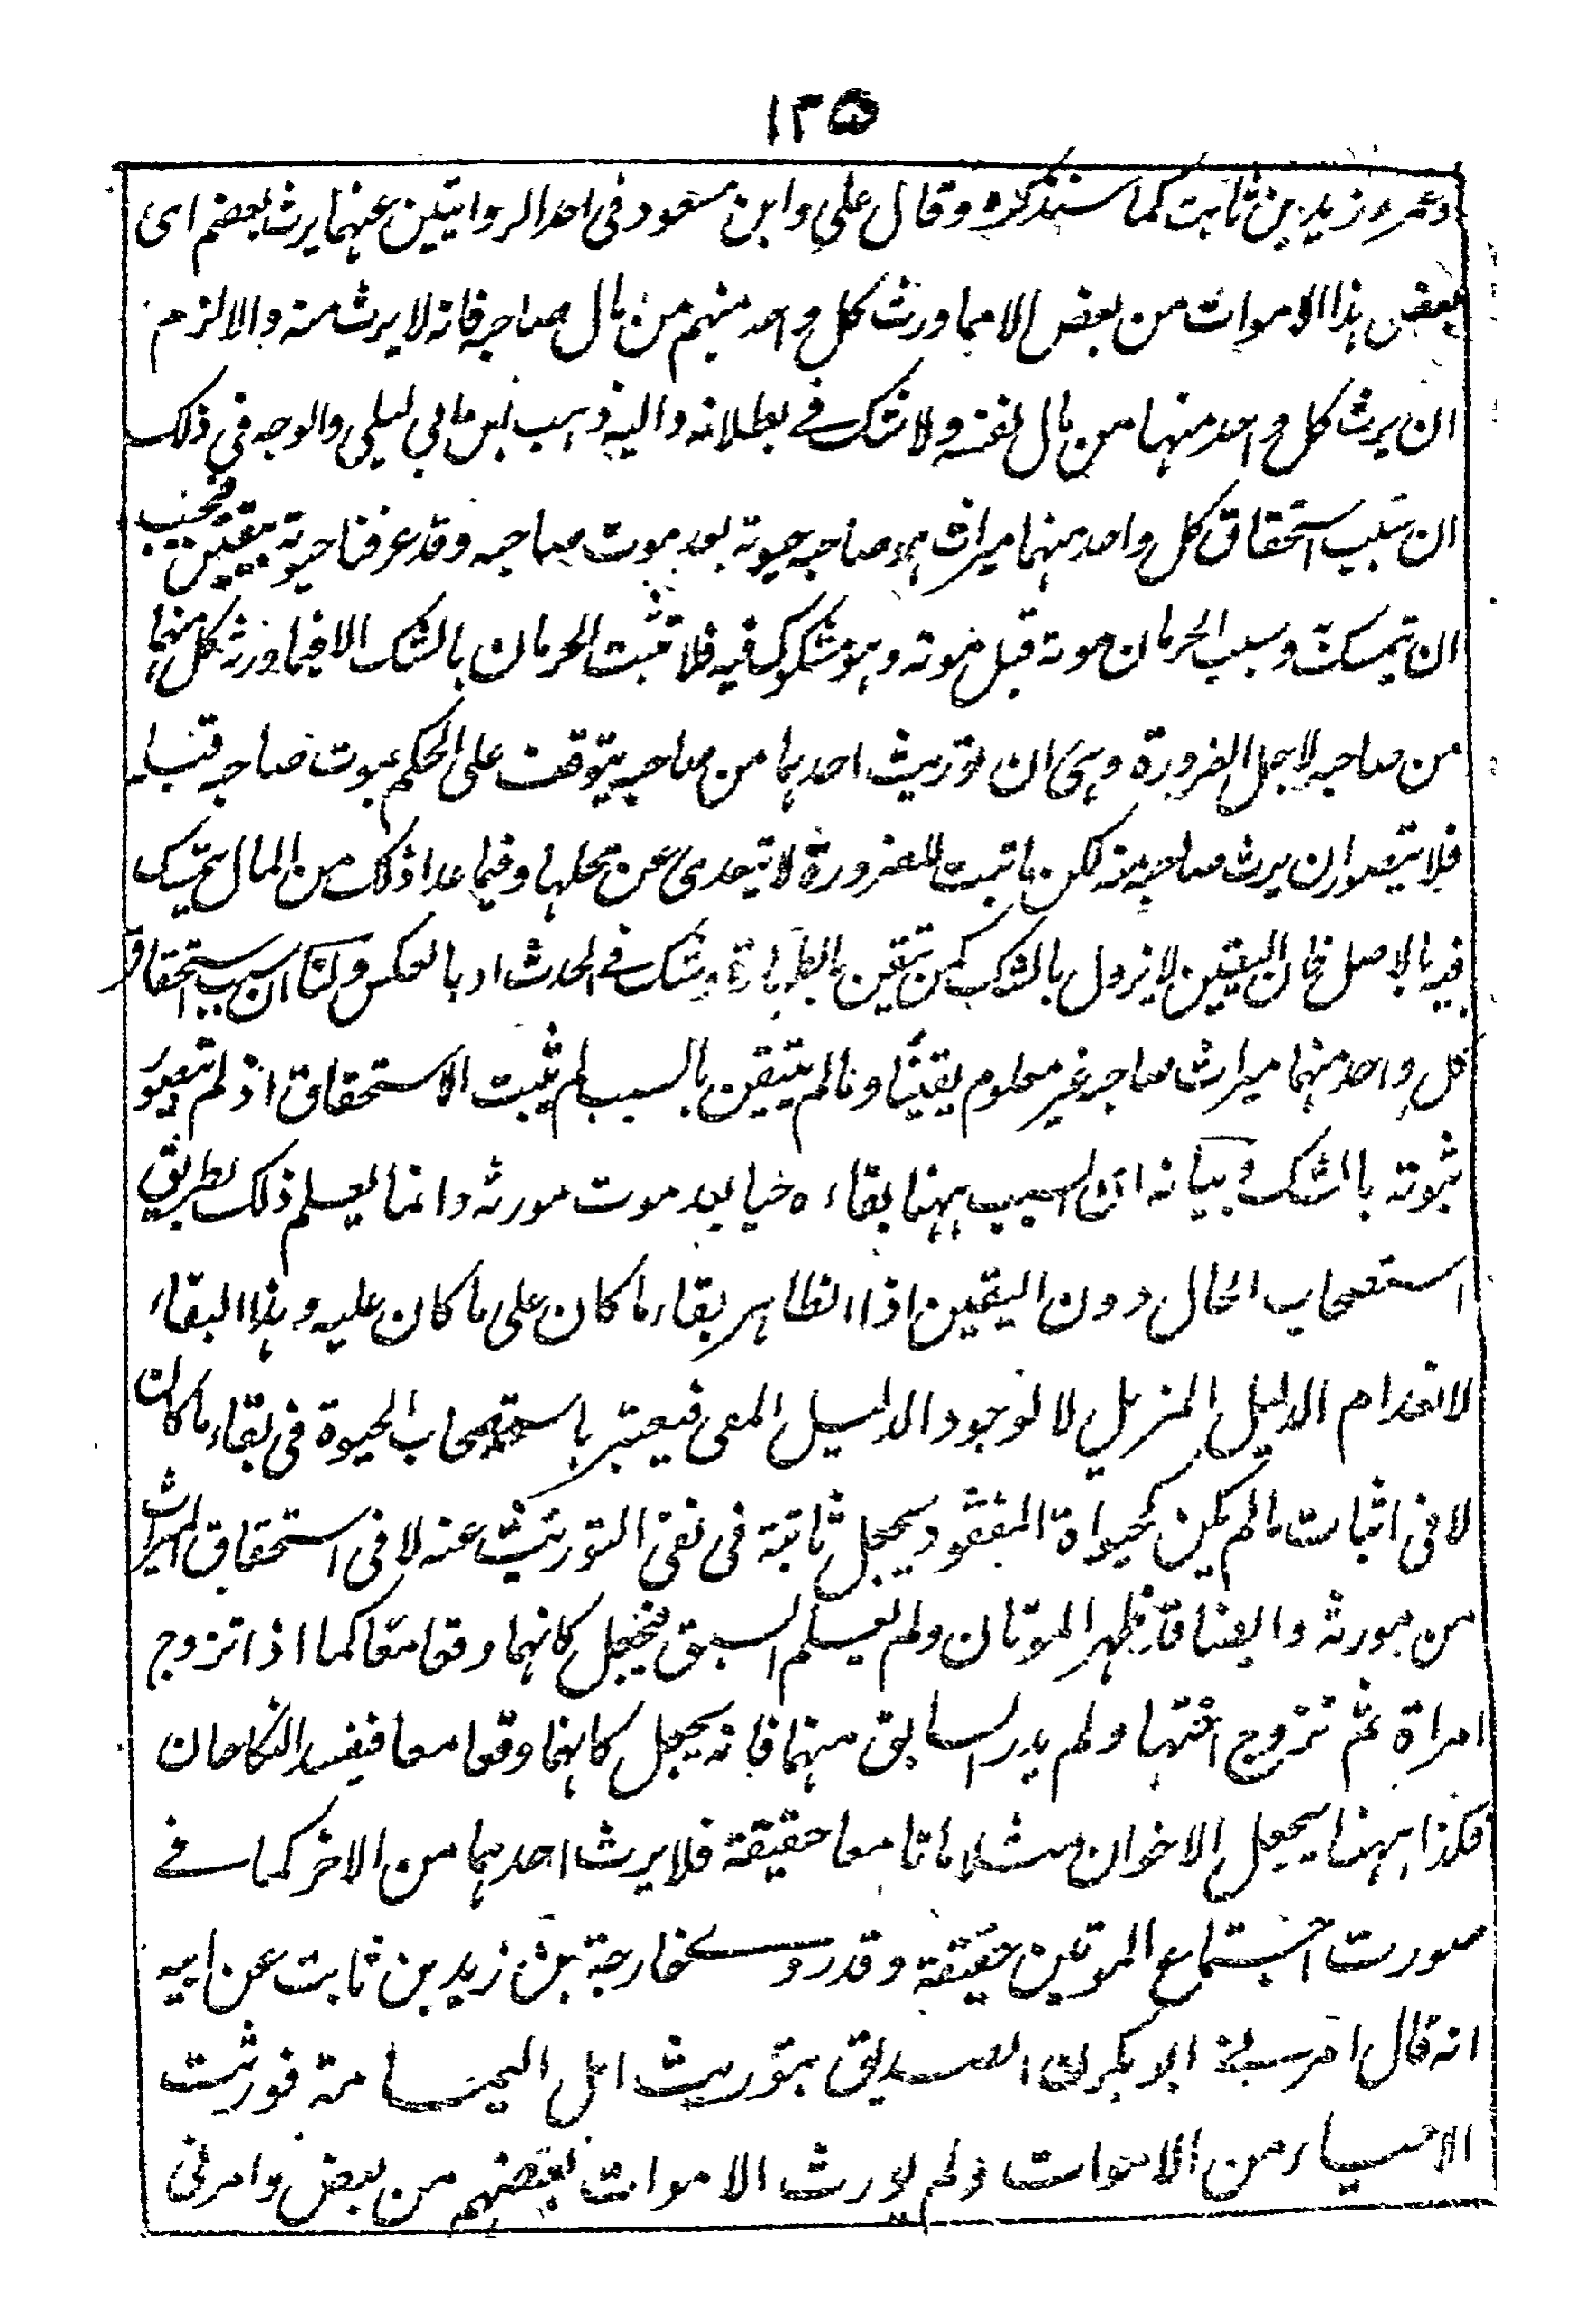 ١٣٥
وعمرو زيد بن ثابت كما سنذكره وقال علي وابن مسعود في احد الروايتين عنهما يرث بعضهم اى
بعض هذا الاموات من بعض الا مما ورث كل واحد منهم من مال صاحبه فانه لا يرث منه والا لزم
ان يرث كل واحد منهما من مال نفسه ولا شك في بطلانه واليه ذهب ابن ابي ليلى والوجه في ذلك
ان سبب استحقاق كل واحد منهما ميراث صاحبه حيوته بعد موت صاحبه وقد عرفنا حيوته بيقين فيجب
ان تمسك وسبب الحرمان موته قبل موته وهو مشكوك فيه فلا تثبت الحرمان بالشك الا فيما ورثه كل منهما
من صاحبه لاجل الضرورة وهى ان توريث احدهما من صاحبه يتوقف على الحكم بموت صاحبه قبله
فلا يتصور ان يرث صاحبه منه لكن ما ثبت للضرورة لا يتعدى عن محلها وفيما عدا ذلك من المال يتمسك
فيه بالاصل فان اليقين لا يزول بالشك كمن تيقن بالطهارة وشك في الحدث او بالعكس ولنا ان سبب استحقاق
كل واحد منهما ميراث صاحبه غير معلوم يقينًا ومالم يتيقن بالسبب لم يثبت الاستحقاق اذ لم يتصور
ثبوته بالشك وبيانه ان السبب ههنا بقاءه حيا بعد موت مورثه وانما يعلم ذلك بطريق
استصحاب الحال دون اليقين اذا الظاهر بقاء ما كان على ما كان عليه وهذا البقاء
لانعدام الدليل المزيل لا لوجود الدليل المبقى فيعتبر باستصحاب الحيوة في بقاء ما كان
لا في اثبات مالم يكن كحيواة المفقود يجعل ثابتة في نفى التوريث عنه لا في استحقاق الميراث
من مورثه وايضا قد ظهر الموتان ولم يعلم السبق فيجعل كانهما وقعا معًا كما اذا تزوج
امراة ثم تزوج اختها ولم يدر السابق منهما فانه يجعل كانهما وقعا معا فيفسد النكاحان
فكذا ههنا يجعل الاخوان مثلا ماتا معا حقيقة فلا يرث احدهما من الاخر كما في
صورت اجتماع الموتين حقيقة وقد روى خارجة بن زيد بن ثابت عن ابيه
انه قال امرنى ابو بكرن الصديق بتوريث اهل اليمامة فورثت
الاحياء من الاموات ولم يورث الاموات بعضهم من بعض وامرنى